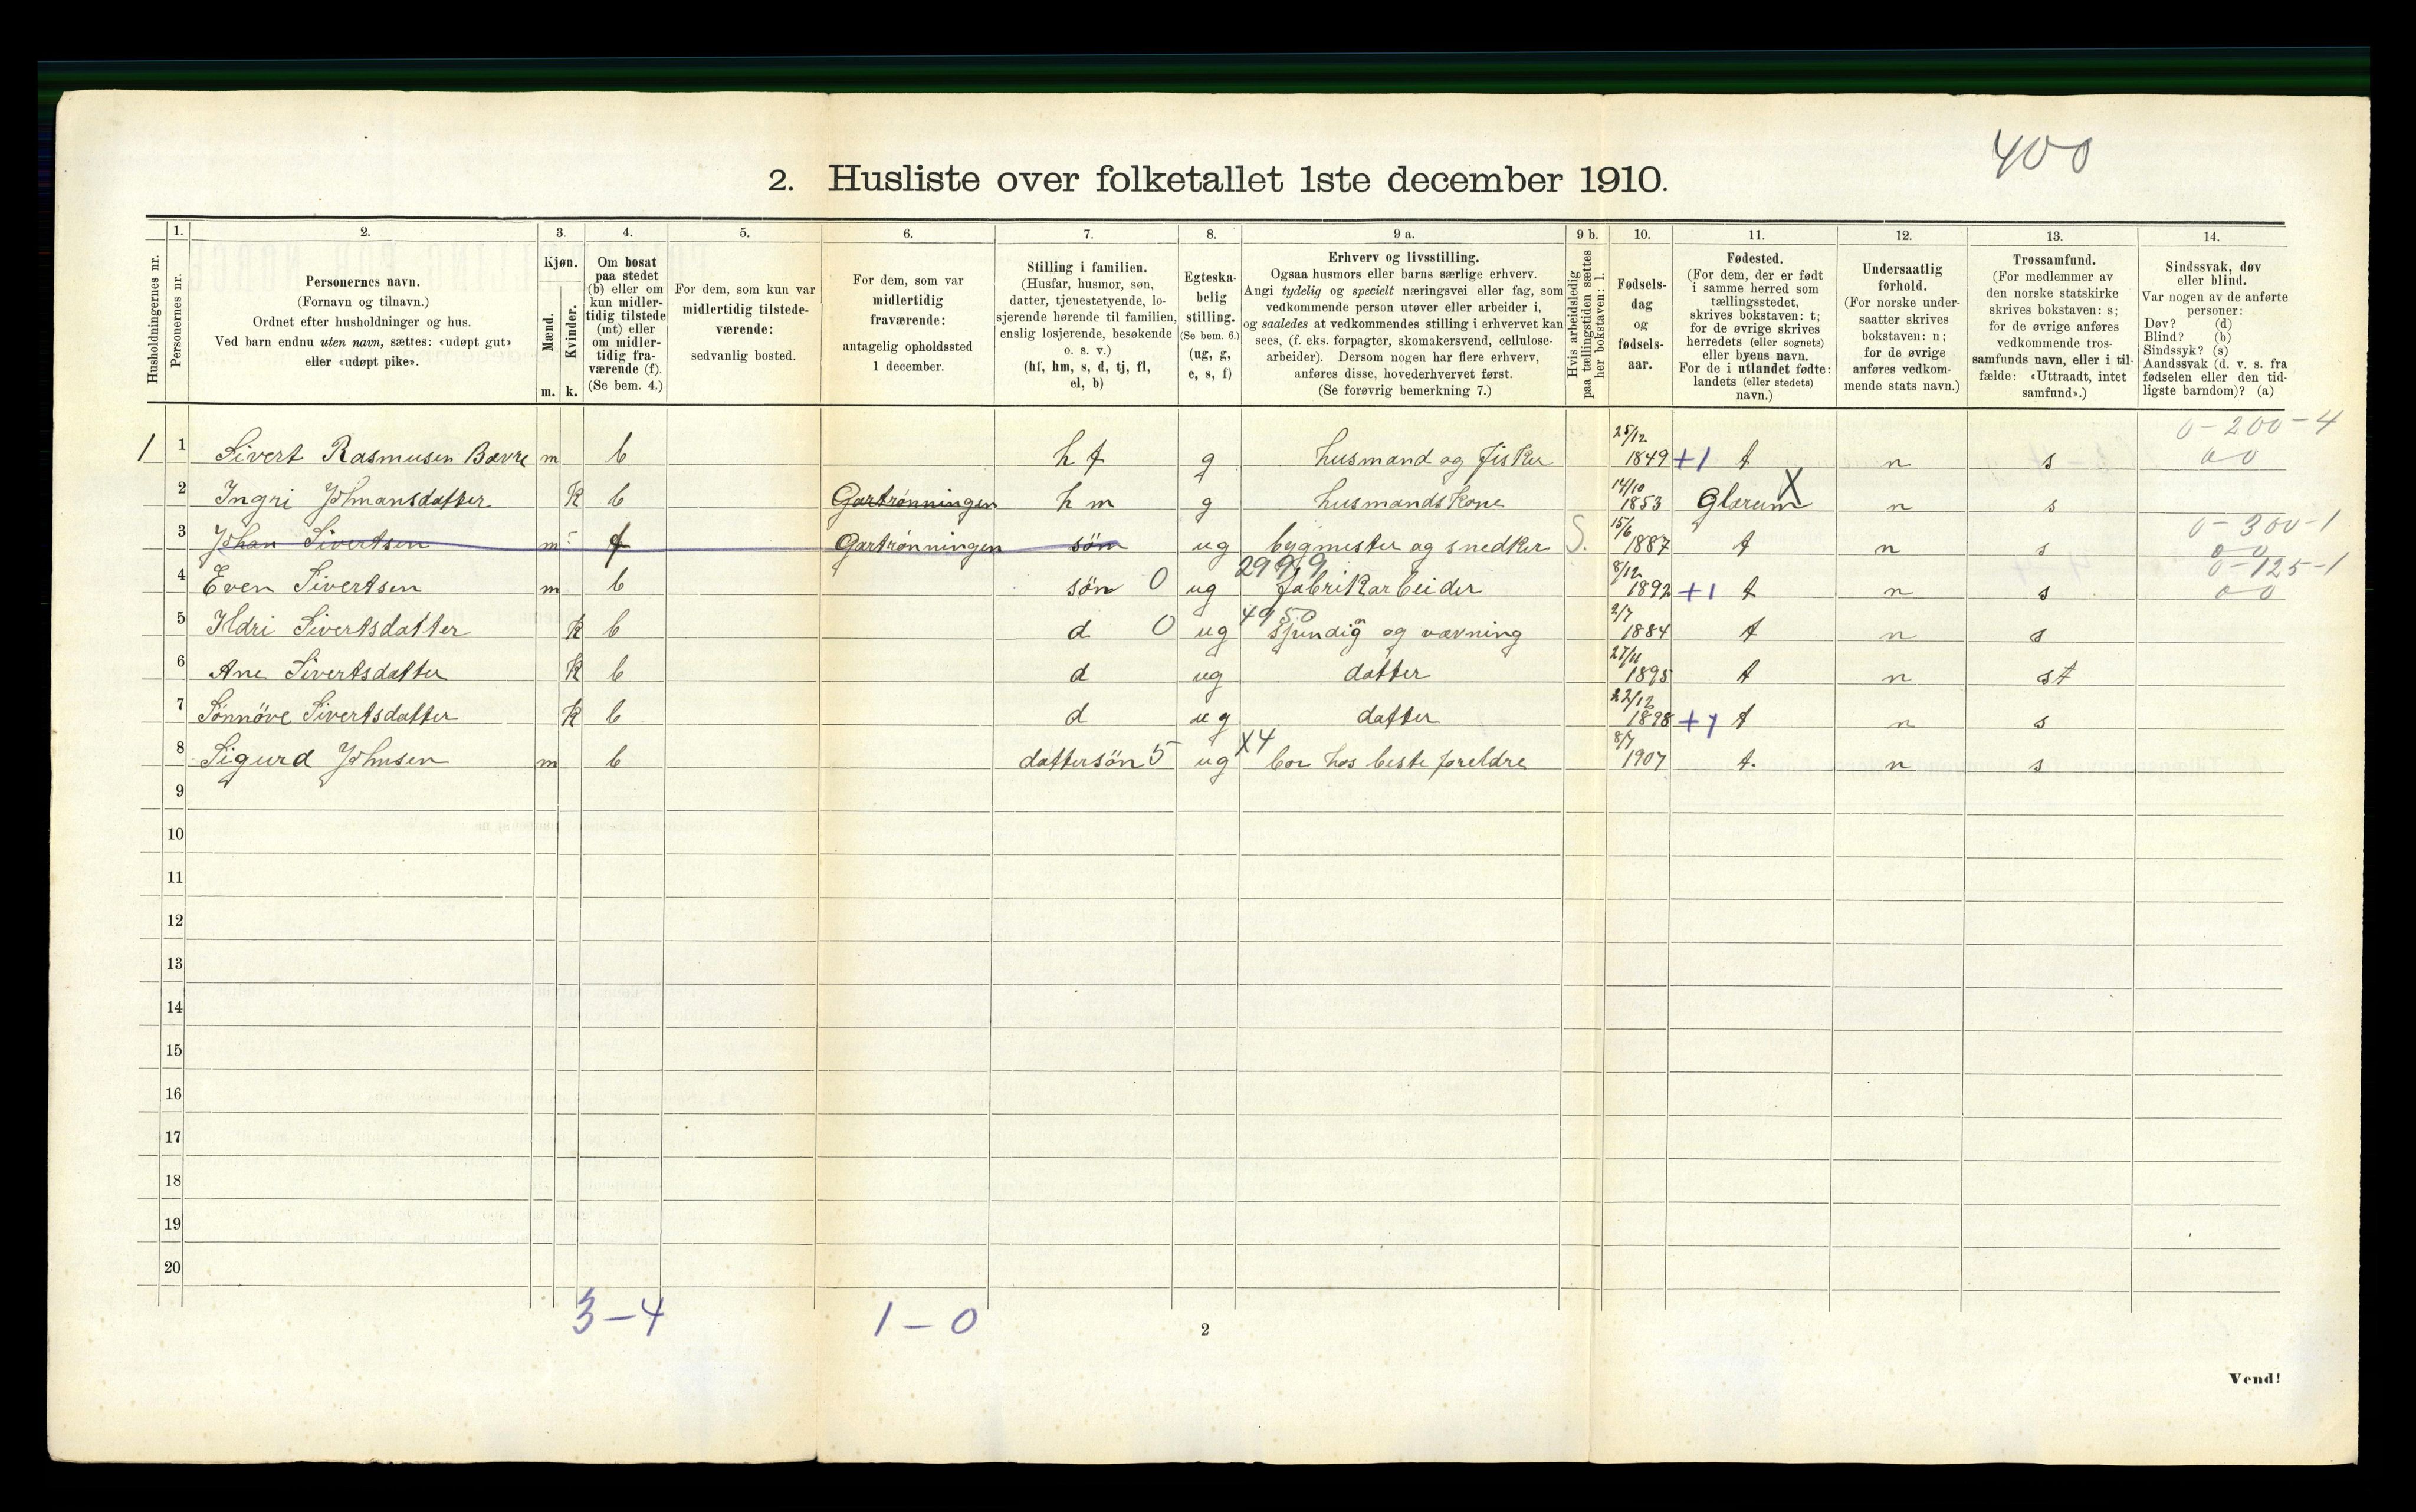 400
2. Husliste over folketallet 1ste december 1910.
Husholdningernes nr.
1.
Personernes nr.
2.
Personernes navn.
(Fornavn og tilnavn.)
Ordnet efter husholdninger og hus.
Ved barn endnu uten navn, sættes: «udøpt gut»
eller «udøpt pike».
3.
Kjøn.
Mænd.
m.
Kvinder.
k.
4.
Om bosat
paa stedet
(b) eller om
kun midler-
tidig tilstede
(mt) eller
om midler-
tidig fra-
værende (f).
(Se bem. 4.)
5.
For dem, som kun var
midlertidig tilstede-
værende:
sedvanlig bosted.
6.
For dem, som var
midlertidig
fraværende:
antagelig opholdssted
1 december.
7.
Stilling i familien.
(Husfar, husmor, søn,
datter, tjenestetyende, lo-
sjerende hørende til familien,
enslig losjerende, besøkende
o. s. v.)
(hf, hm, s, d, tj, fl,
el, b)
8.
Egteska-
belig
stilling.
(Se bem. 6.)
(ug, g,
e, s, f)
9 a.
Erhverv og livsstilling.
Ogsaa husmors eller barns særlige erhverv.
Angi tydelig og specielt næringsvei eller fag, som
vedkommende person utøver eller arbeider i,
og saaledes at vedkommendes stilling i erhvervet kan
sees, (f. eks. forpagter, skomakersvend, cellulose-
arbeider). Dersom nogen har flere erhverv,
anføres disse, hovederhvervet først.
(Se forøvrig bemerkning 7.)
9 b.
Hvis arbeidsledig
paa tællingstiden sættes
her bokstaven: l.
10.
Fødsels-
dag
og
fødsels-
aar.
11.
Fødested.
(For dem, der er født
i samme herred som
tællingsstedet,
skrives bokstaven: t;
for de øvrige skrives
herredets (eller sognets)
eller byens navn.
For de i utlandet fødte:
landets (eller stedets)
navn.)
12.
Undersaatlig
forhold.
(For norske under-
saatter skrives
bokstaven: n;
for de øvrige
anføres vedkom-
mende stats navn.)
13.
Trossamfund.
(For medlemmer av
den norske statskirke
skrives bokstaven: s;
for de øvrige anføres
vedkommende tros-
samfunds navn, eller i til-
fælde: «Uttraadt, intet
samfund».)
14.
Sindssvak, døv
eller blind.
Var nogen av de anførte
personer:
Døv? (d)
Blind? (b)
Sindssyk? (s)
Aandssvak (d. v. s. fra
fødselen eller den tid-
ligste barndom)? (a)
0-200-4
1 1 Sivert Rasmusen Bævre m b hf g husmand og fisker 25/12 1849 +1 t n s 0 0
2 Ingri Johnansdatter k b Gartrønningen hm g husmandskone 14/10 1853 Glærum X n s
0-300-1
3 Johan Sivertsen m f Gartrønningen søn ug bygmester og snedker S. 15/6 1887 t n s 0 0
29919 0-125-1
4 Even Sivertsen m b søn 0 ug fabrikarbeider 8/12 1892 +1 t n s 0 0
4950
5 Ildri Sivertsdatter k b d 0 ug spinding og vævning 2/7 1884 t n s
6 Ane Sivertsdatter k b d ug datter 27/11 1895 t n st
7 Sønnöve Sivertsdatter k b d ug datter 22/12 1898 +1 t n s
8 Sigurd Johnsen m b dattersön 5 ug X4 bor hos besteforeldre 8/7 1907 t. n s
9
10
11
12
13
14
15
16
17
18
19
20
3-4 1-0
2
Vend!